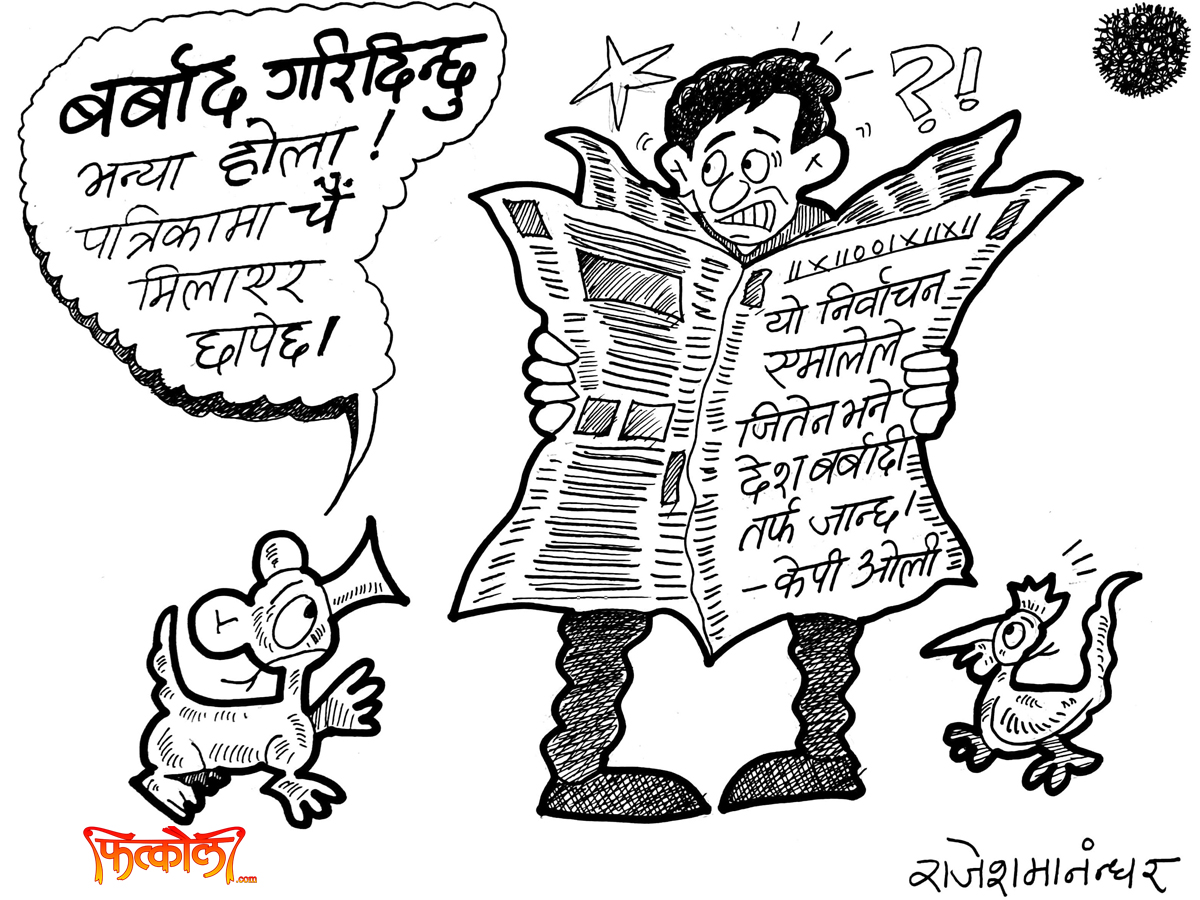 बर्बाद गरिदिन्छु
भन्या होला!
पत्रिकामा चैं
मिलाएर
छापेछ।
?!
यो निर्वाचन
एमालेले
जितेन भने
देश बर्बादी
तर्फ जान्छ।
- केपी ओली
फत्कौला
.com
राजेशमानंन्धर